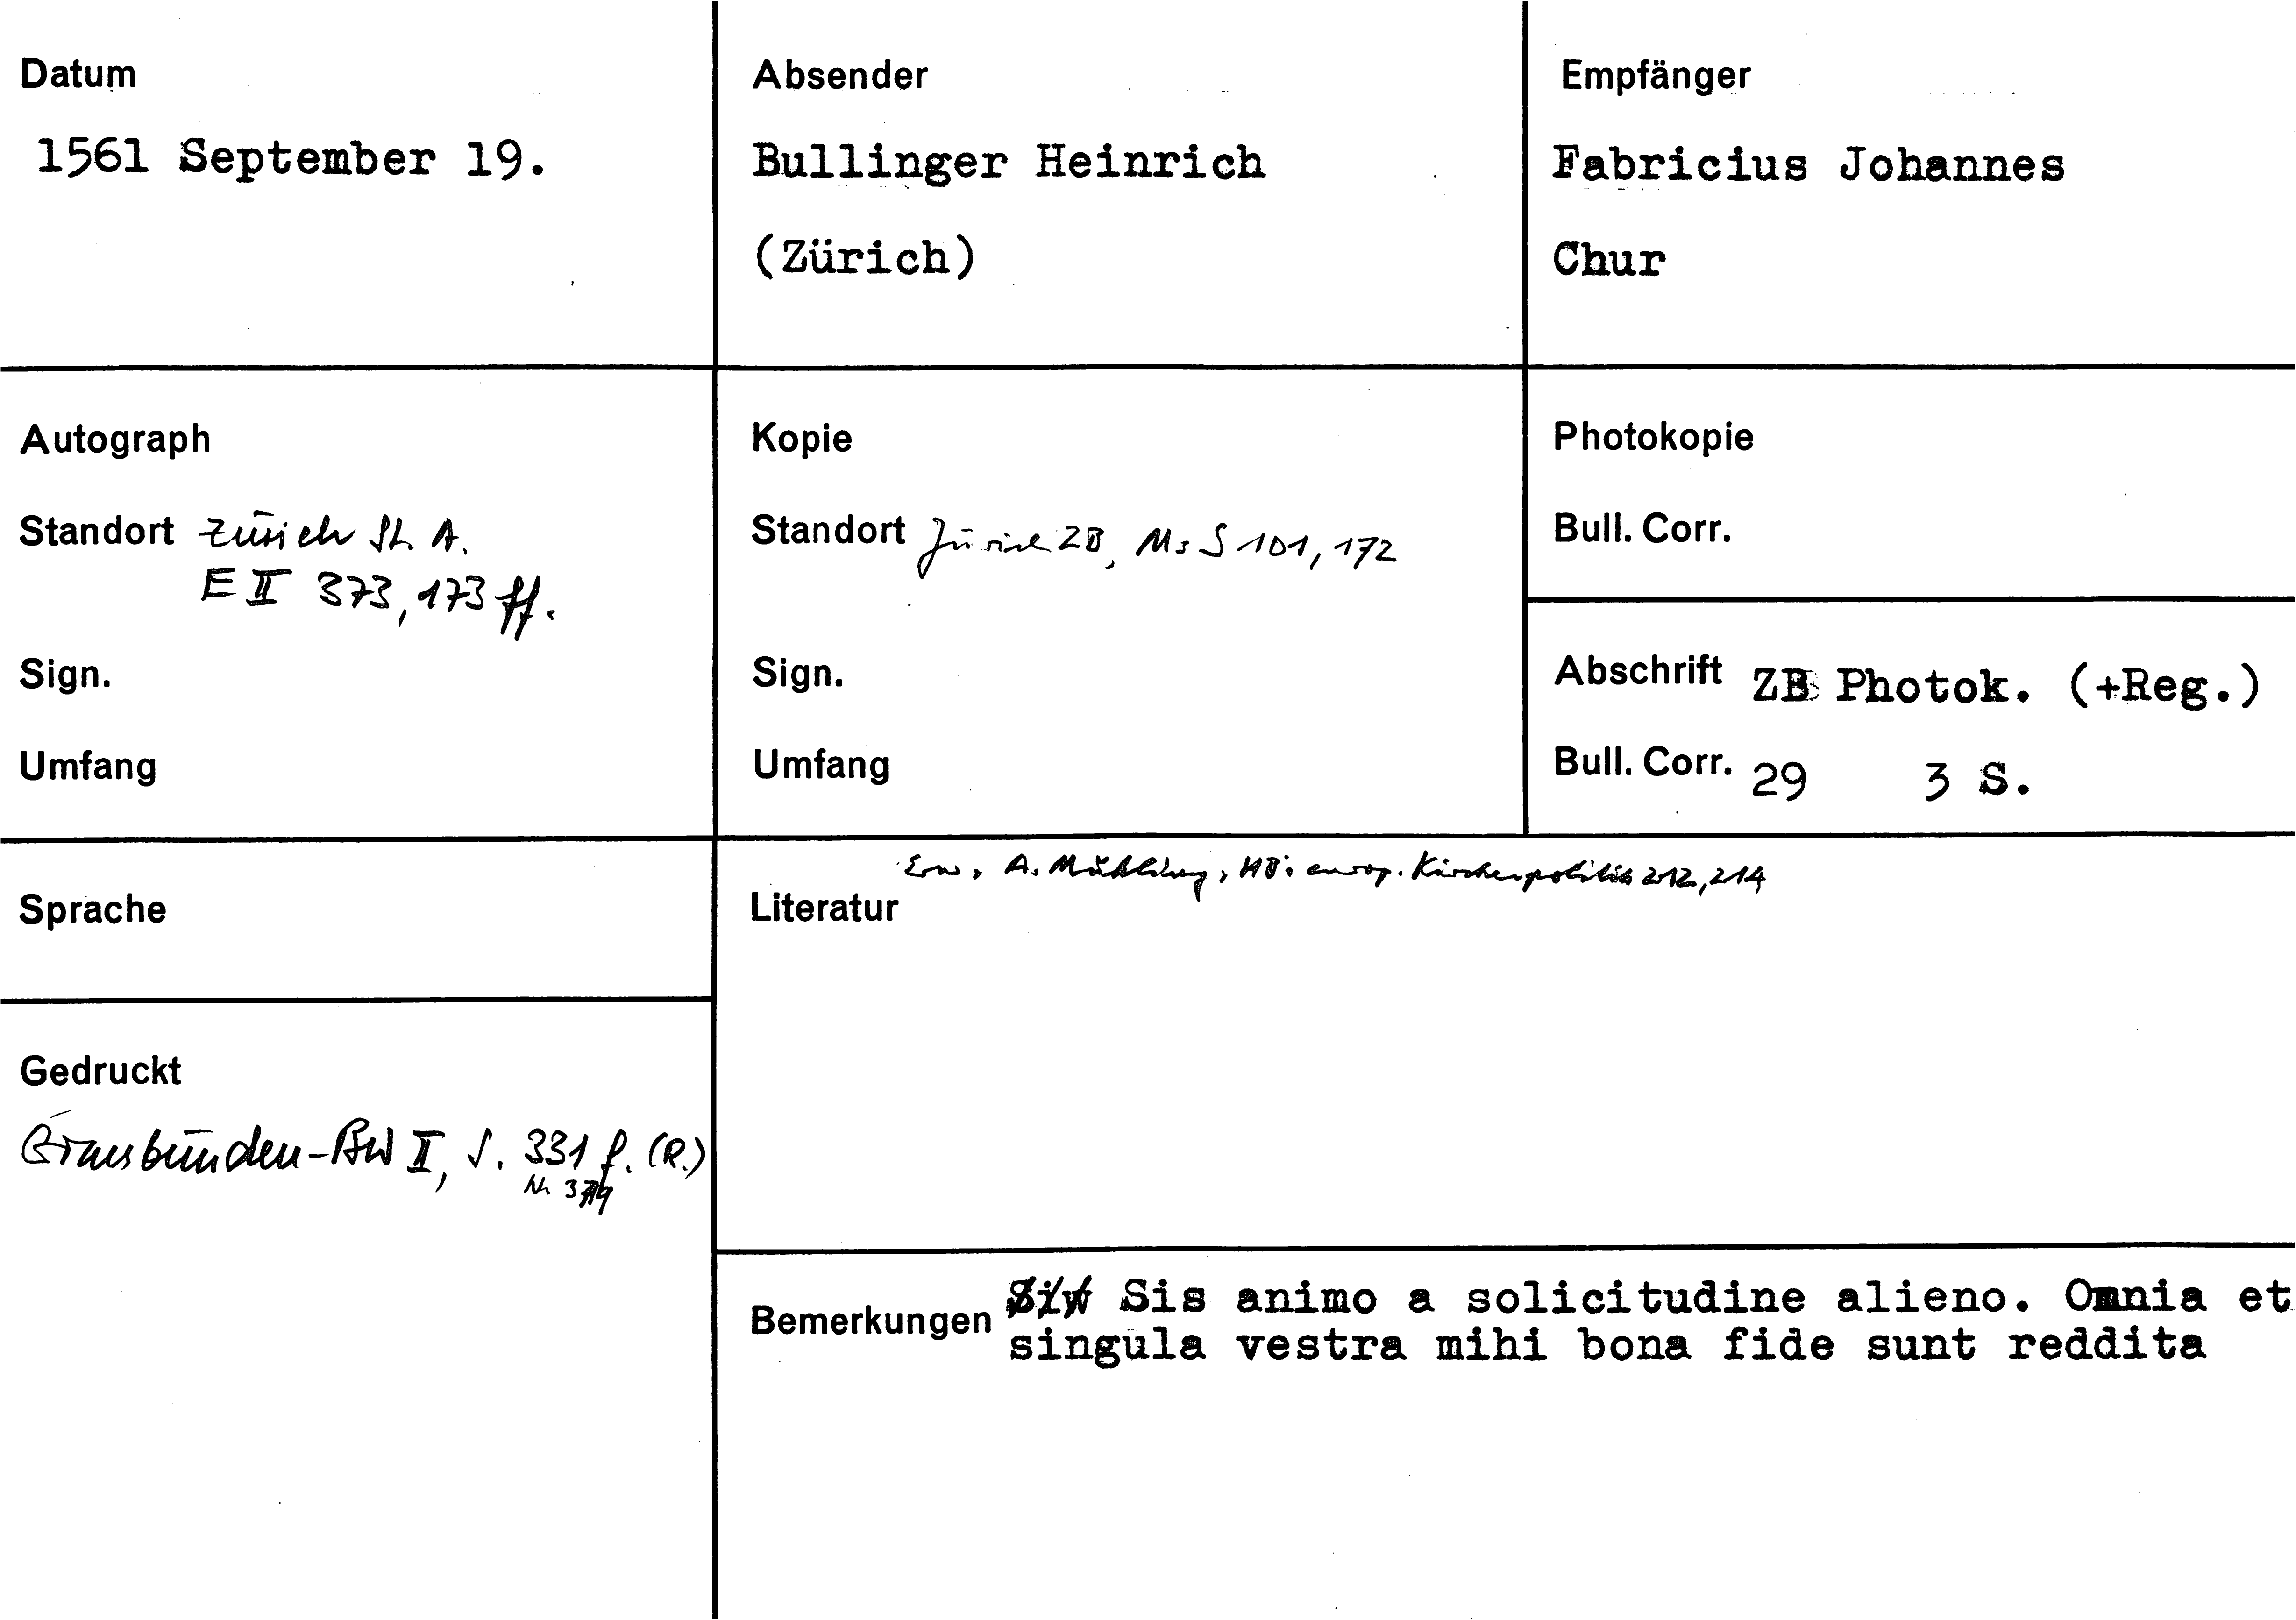 Datum
1561 September 19.
Absender
Bullinger Heinrich
(Zürich)
Empfänger
Fabricius Johannes
Chur
Autograph
Standort Zürich St. A.
E II 373, 173 ff.
Sign.
Umfang
Kopie
Standort Zürich ZB, Ms S 101, 172
Sign.
Umfang
Photokopie
Bull. Corr.
Abschrift ZB Photok. (+Reg.)
Bull. Corr. 29 3 S.
Sprache
Gedruckt
Graubünden-BW II, S. 331 f. (R.)
Nr.
Erw. A. Mühling, HBs europ. Kirchenpolitik 212, 214
Literatur
Bemerkungen Sis animo a solicitudine alieno. Omnia et
singula vestra mihi bona fide sunt reddita